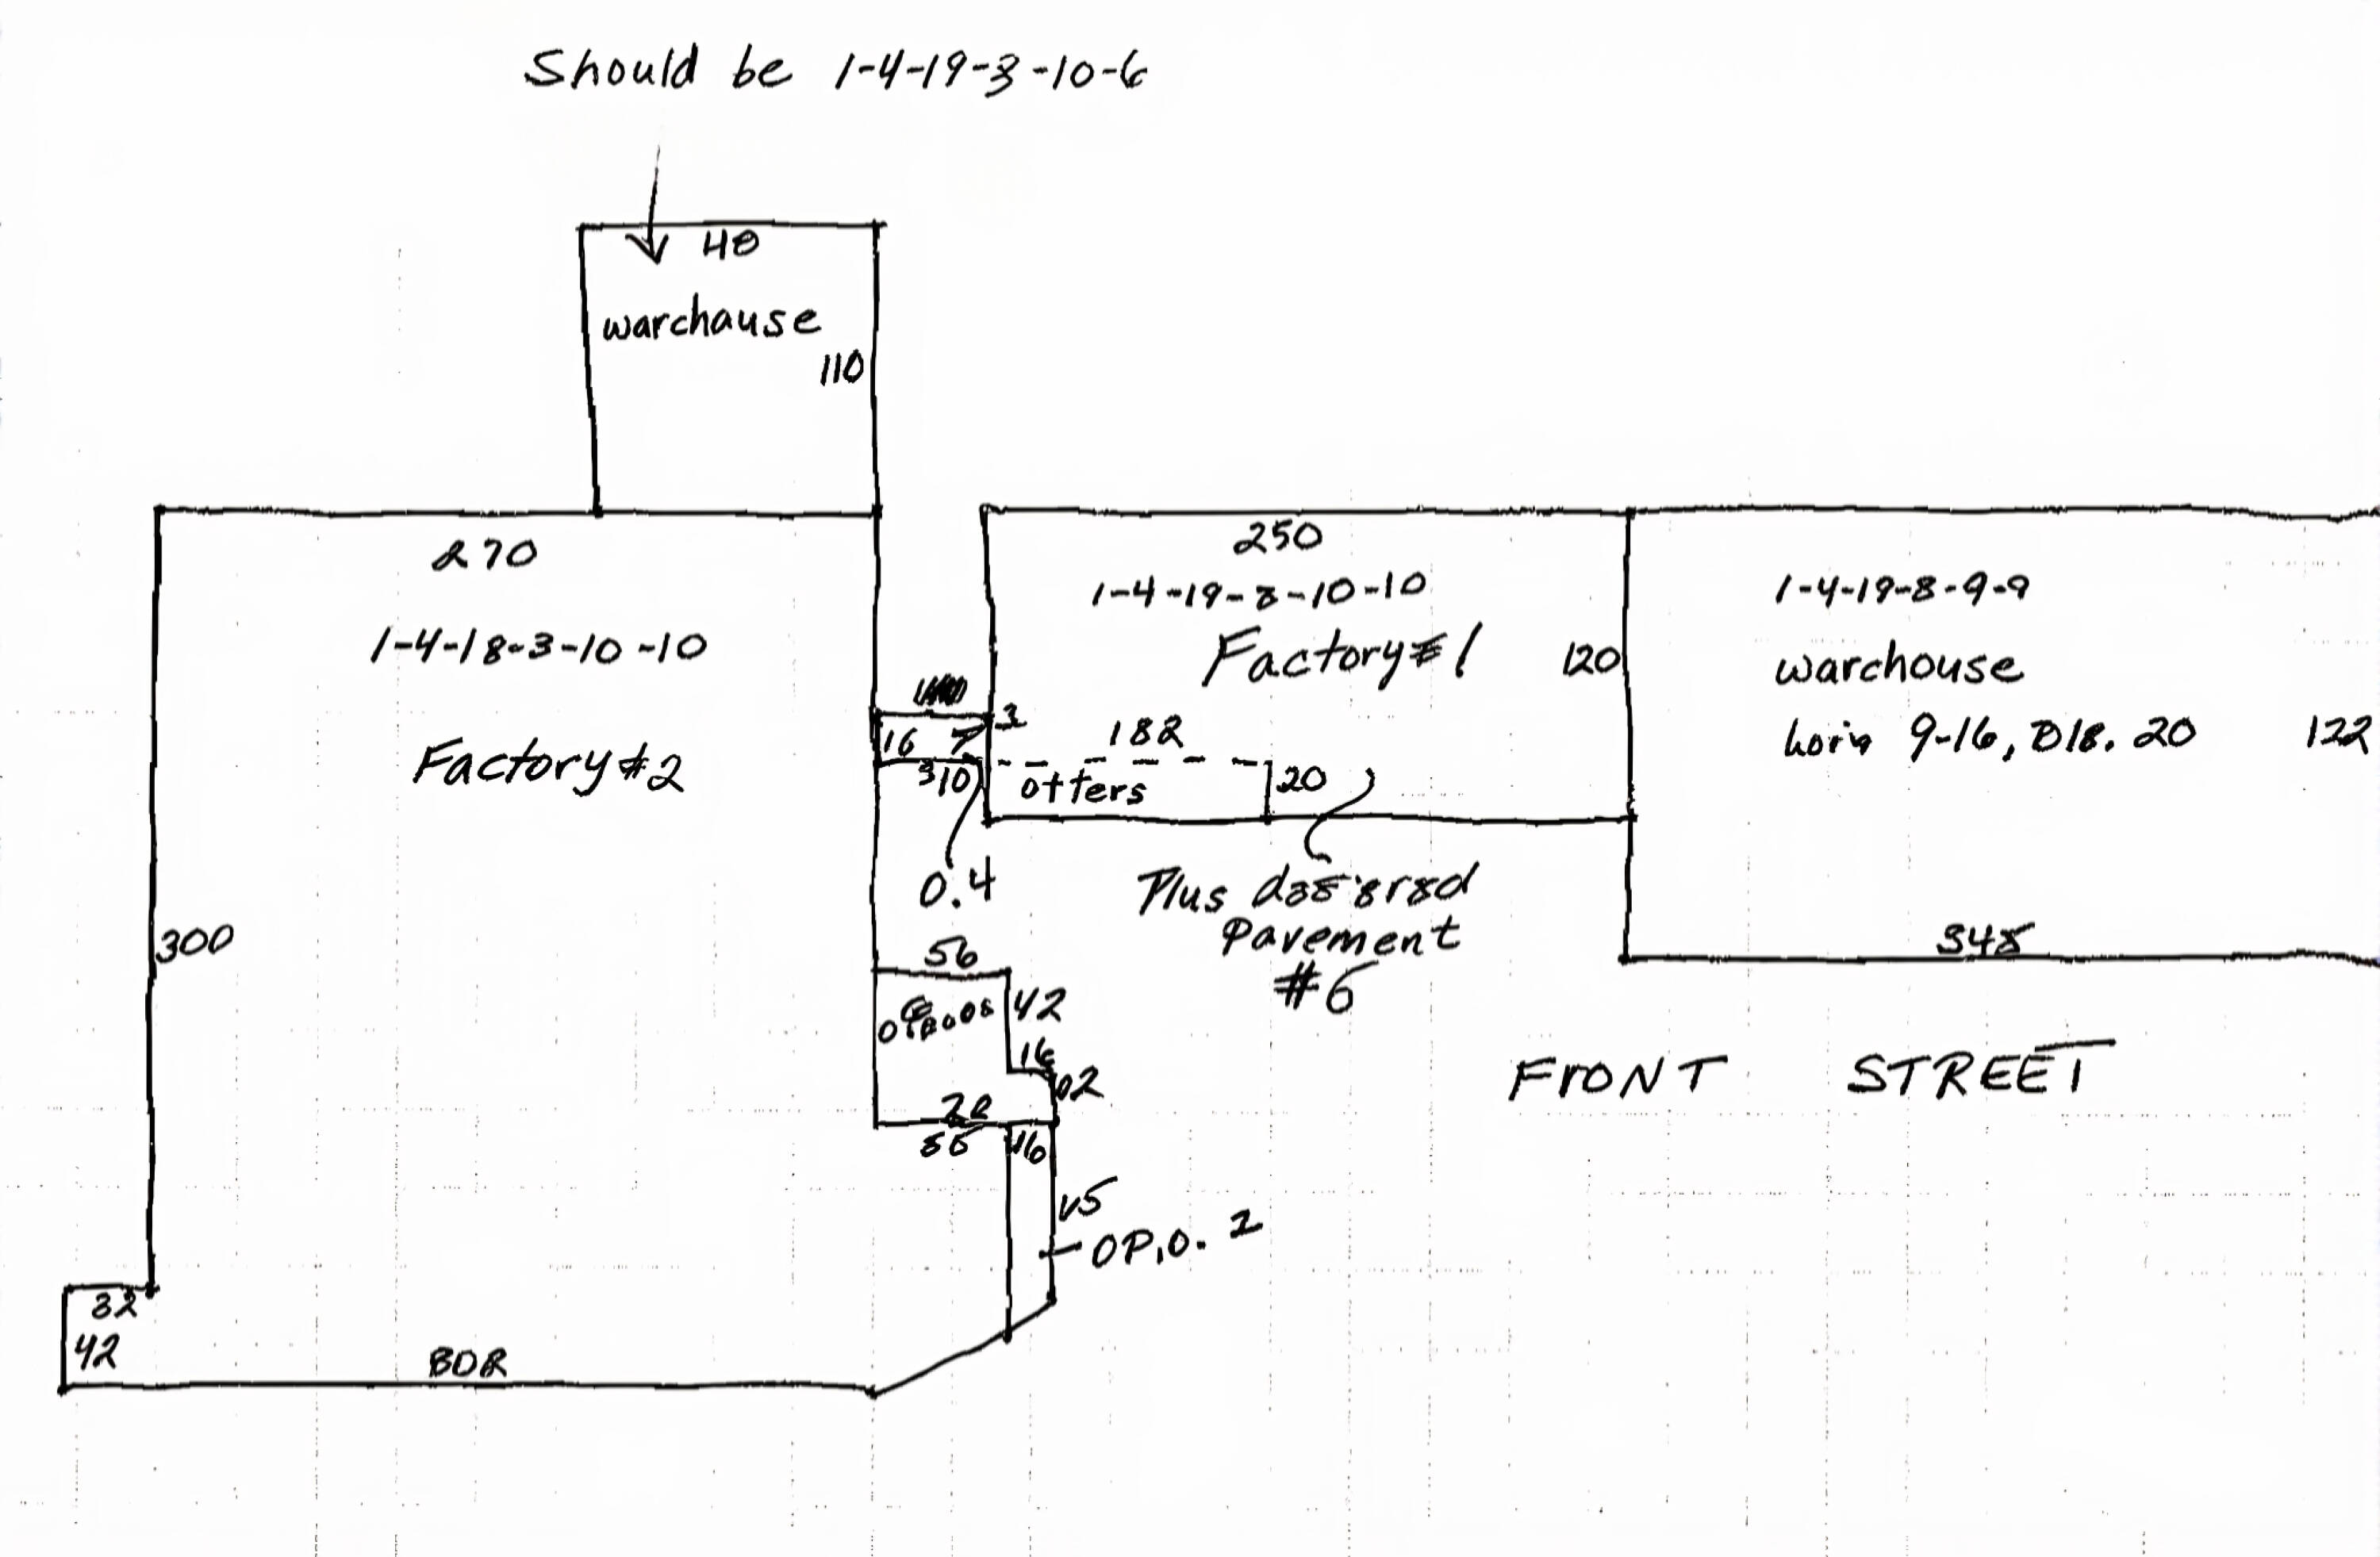 Should be 1-4-19-3-10-6
40
warchause
110
270
1-4-18-3-10-10
Factory #2
300
250
1-4-19-8-10-10
Factory #1
120
1-4-19-8-9-9
warchouse
hoin 9-16, 018. 20
122
3
16 7
310
182
otters
20
0.4
Plus
Pavement
#6
348
56
42
16
02
20
55
16
V5
OP.O. 2
FRONT STREET
32
42
BOR